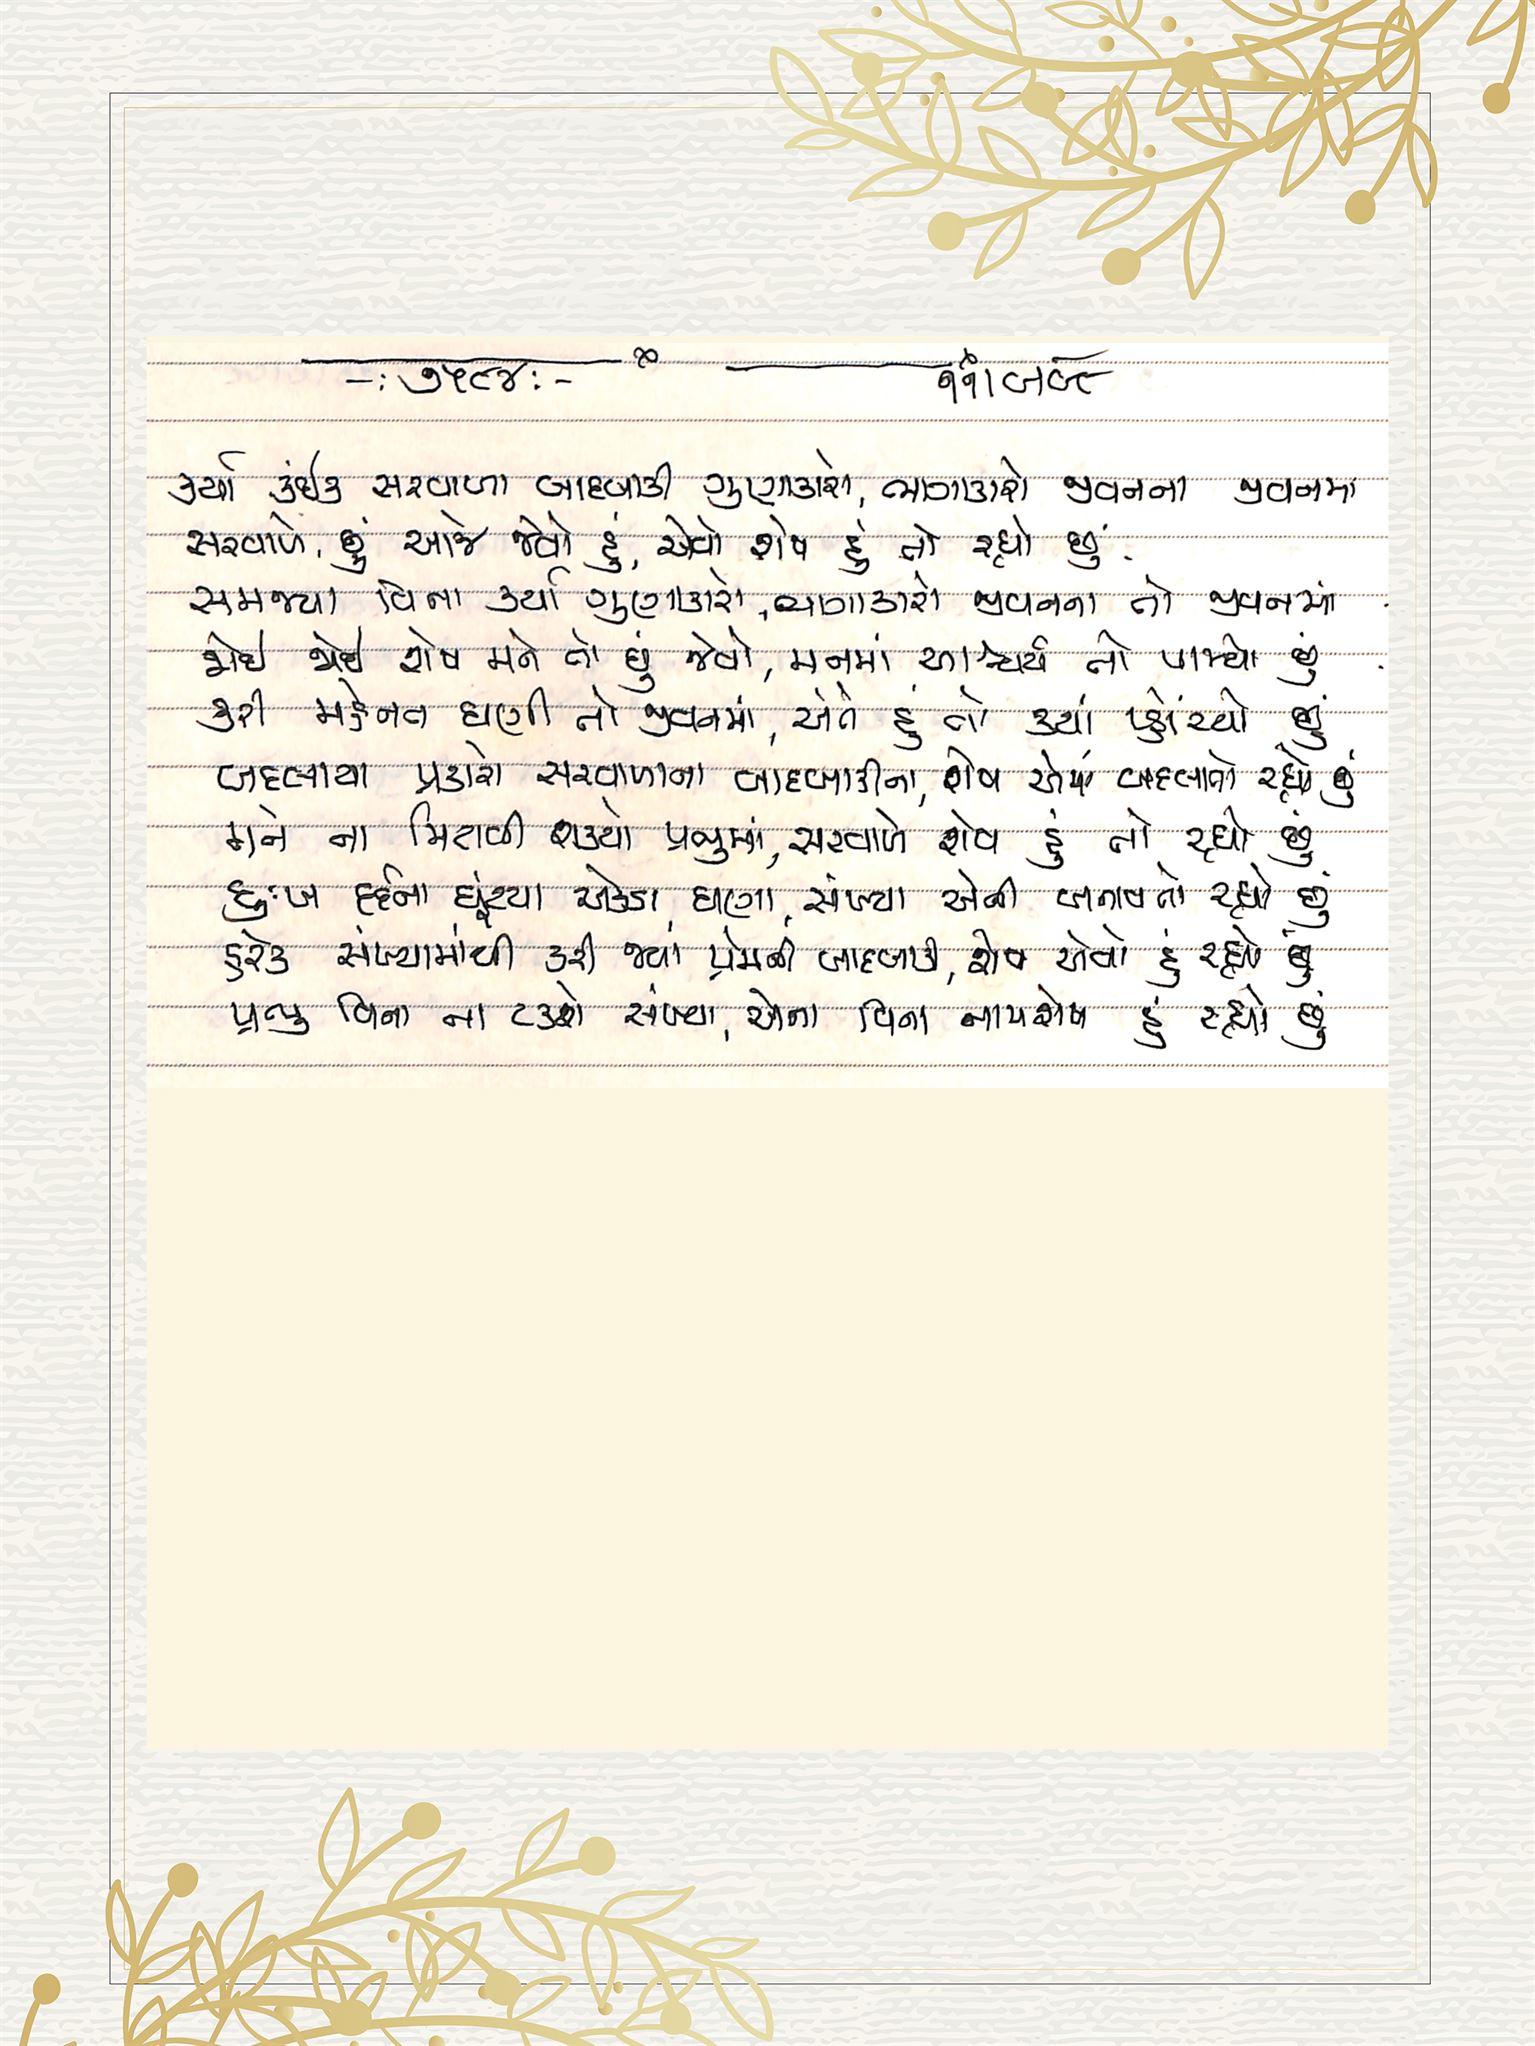 -: ૭૫૯૪ :-
કર્યા કંઈક સરવાળા બાદબાકી ગુણાકારો, ભાગાકારો જીવનના જીવનમાં
સરવાળે, છું આજે જેવો હું, એવો શેષ હું તો રહ્યો છું.
સમજ્યા વિના કર્યા ગુણાકારો, ભાગાકારો જીવનના તો જીવનમાં
જોઈ જોઈ શેષ મને તો છું જેવો, મનમાં આશ્ચર્ય તો પામ્યો છું
કરી મહેનત ઘણી તો જીવનમાં, અંતે હું તો ક્યાં પહોંચ્યો છું
બદલાયા પ્રકારો સરવાળાના બાદબાકીના, શેષ એમાં બદલાતો રહ્યો છું
મને ના મિટાવી શક્યો પ્રભુમાં, સરવાળે શેષ હું તો રહ્યો છું
દુઃખ દર્દના ઘૂંટયા એકડા ઘણા, સંખ્યા એની બનાવતો રહ્યો છું
દરેક સંખ્યામાંથી કરી જ્યાં પ્રેમની બાદબાકી, શેષ એવો હું રહ્યો છું
પ્રભુ વિના ના ટકશે સંખ્યા, એના વિના નામશેષ હું રહ્યો છું